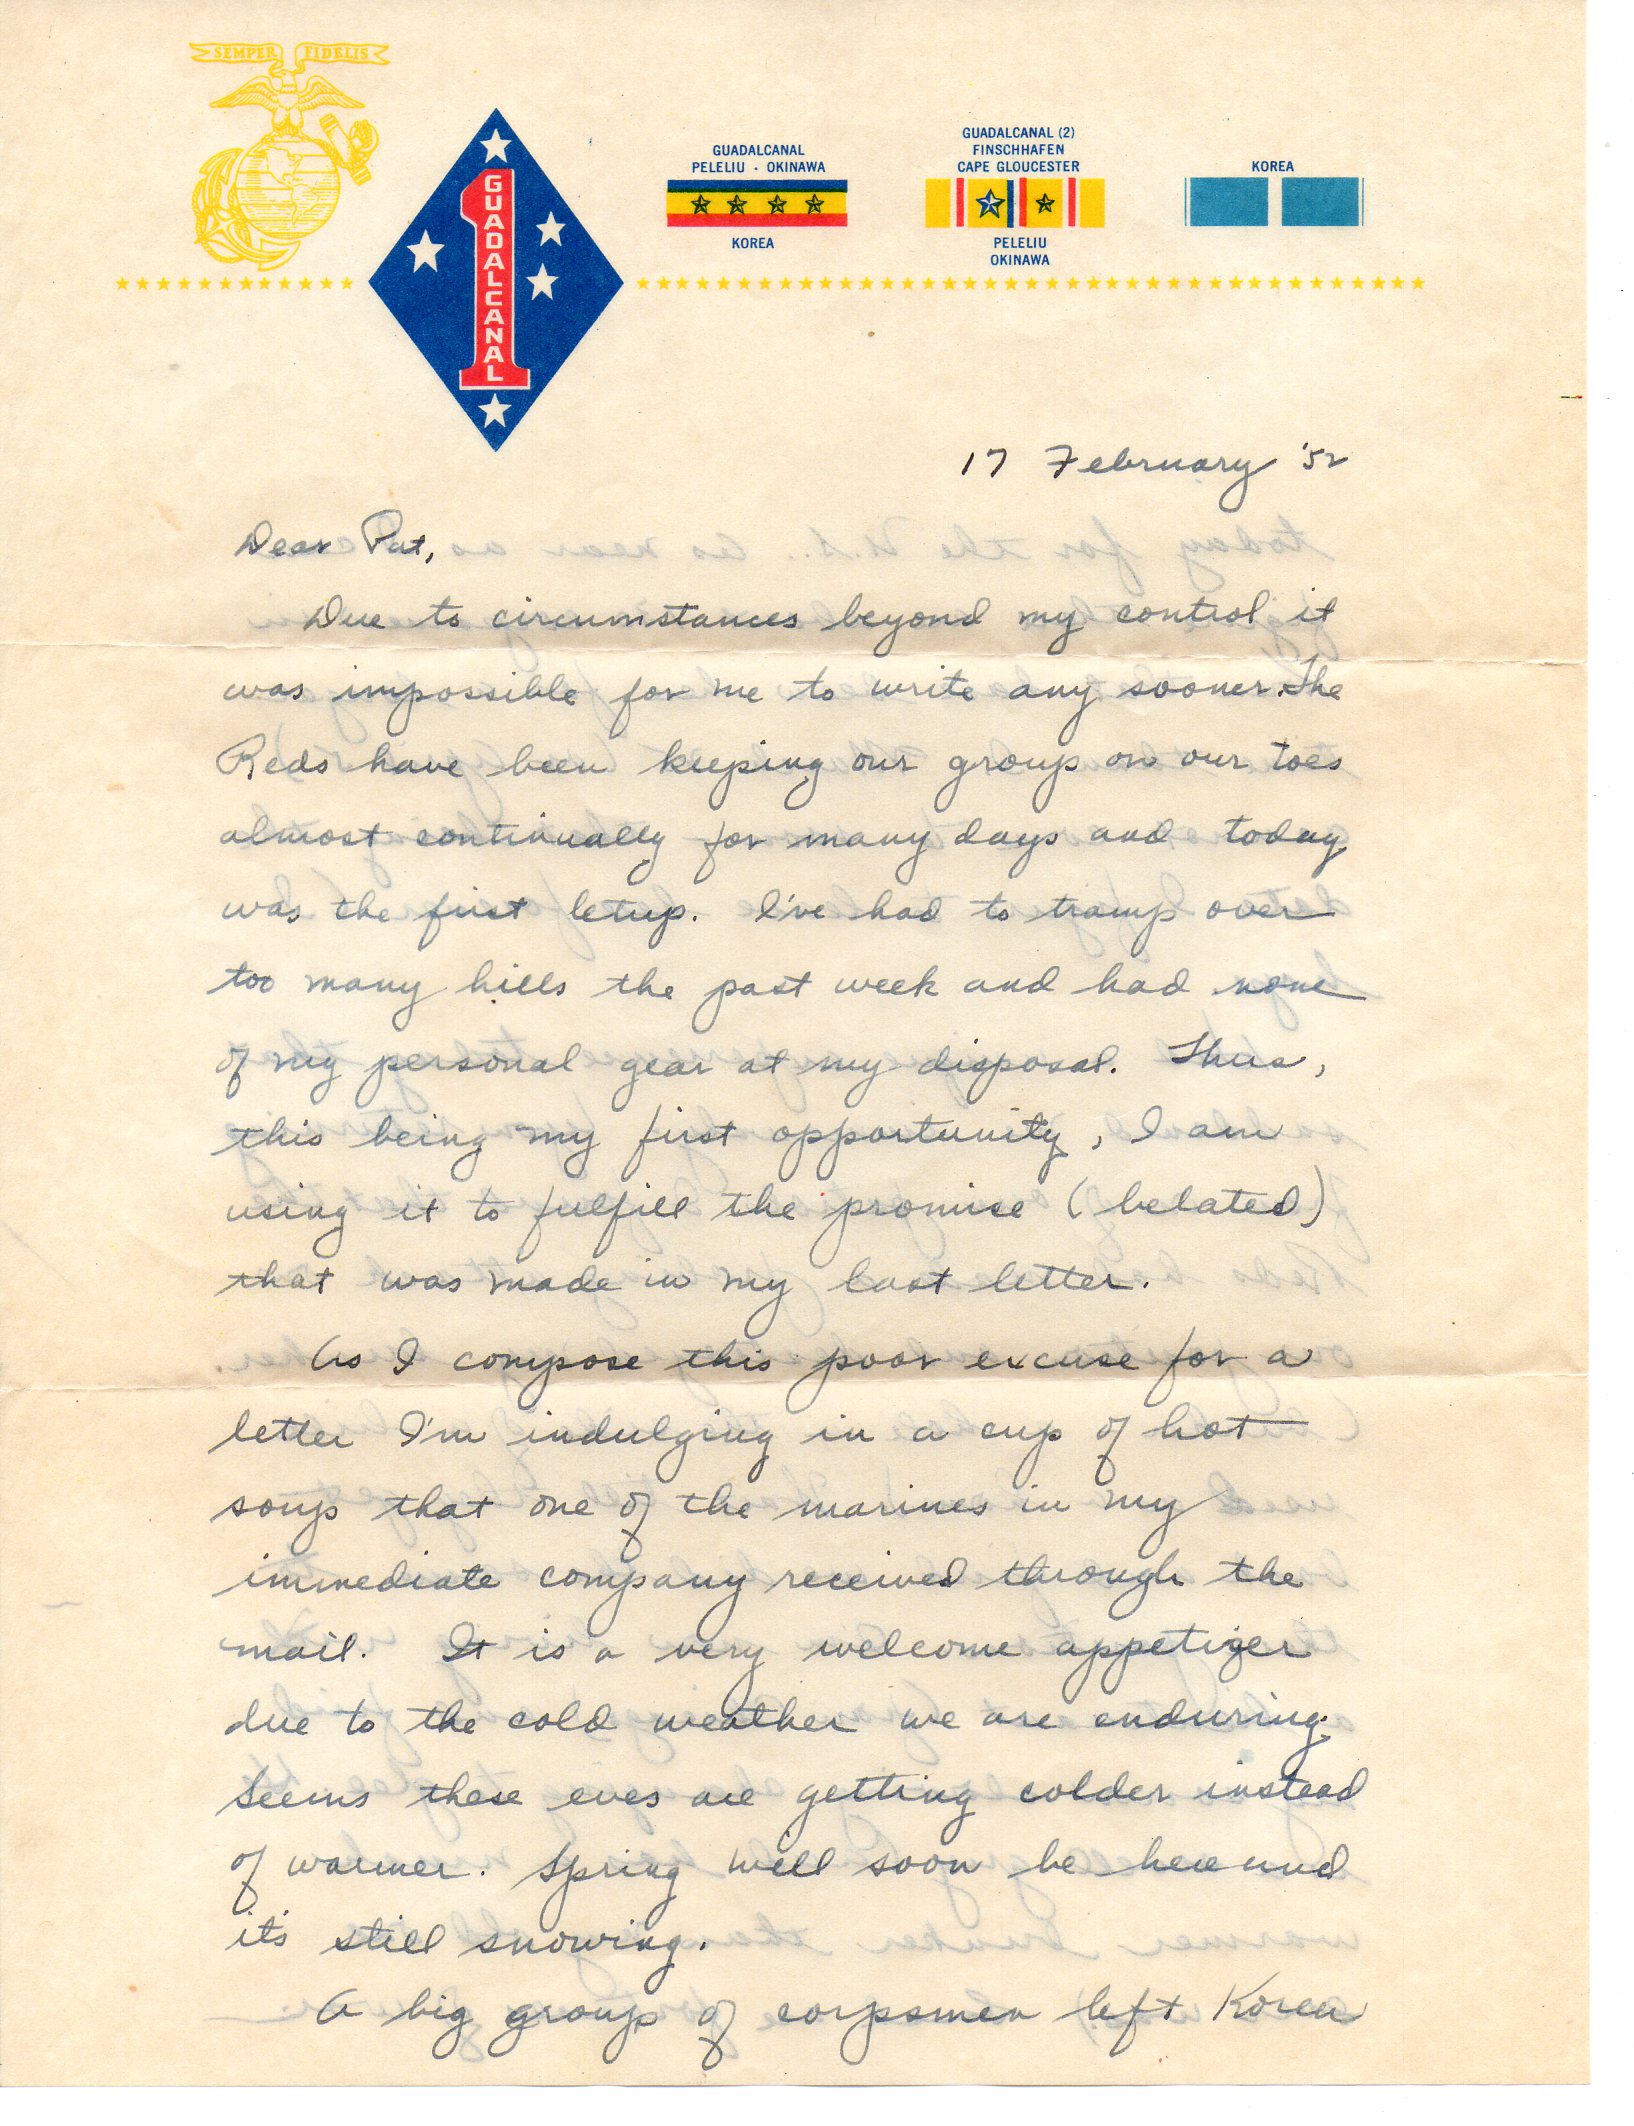 SEMPER FIDELIS
1
GUADALCANAL
GUADALCANAL
PELELIU · OKINAWA
KOREA
GUADALCANAL (2)
FINSCHHAFEN
CAPE GLOUCESTER
PELELIU
OKINAWA
KOREA
17 February '52
Dear Pat,
Due to circumstances beyond my control it
was impossible for me to write any sooner. The
Reds have been keeping our group on our toes
almost continually for many days and today
was the first letup. I've had to tramp over
too many hills the past week and had none
of my personal gear at my disposal. Thus,
this being my first opportunity, I am
using it to fulfill the promise (belated)
that was made in my last letter.
As I compose this poor excuse for a
letter I'm indulging in a cup of hot
soup that one of the marines in my
immediate company received through the
mail. It is a very welcome appetizer
due to the cold weather we are enduring.
Seems these eves are getting colder instead
of warmer. Spring will soon be here and
it's still snowing.
A big group of corpsmen left Korea